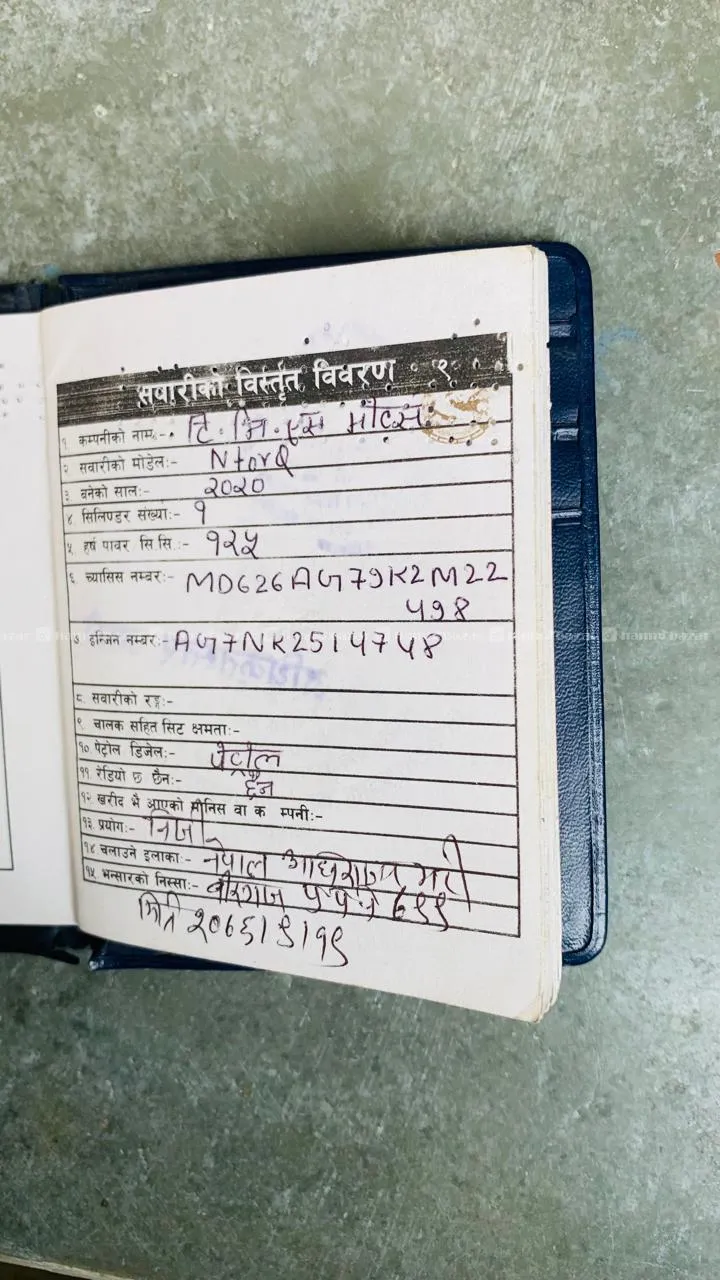 सवारीको विस्तृत विवरण ९
१ कम्पनीको नाम:- टि. भि. एस मोटर्स
२ सवारीको मोडेल:- NtorQ
३ बनेको साल:- २०२०
४ सिलिण्डर संख्या:- १
५ हर्ष पावर सि.सि.:- १२५
६ च्यासिस नम्बर:- MD626AG79K2M22
498
७ इन्जिन नम्बर:- AG7NK2514748
८ सवारीको रङ्ग:-
९ चालक सहित सिट क्षमता:-
१० पेट्रोल डिजेल:- पेट्रोल
११ रेडियो छ छैन:- छैन
१२ खरीद भै आएको मानिस वा क म्पनी:-
१३ प्रयोग:- निजी
१४ चलाउने इलाका:- नेपाल अधिराज्य भरी
१५ भन्सारको निस्सा:- बीरगंज प्र प नं
मिति २०७६।९।१९
hamro bazar